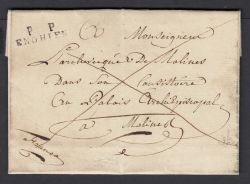 P P
ENGHIEN
A Monseigneur
L'archevêque de Malines
Dans son Consistoire
Au Palais Archiépiscopal
à Malines